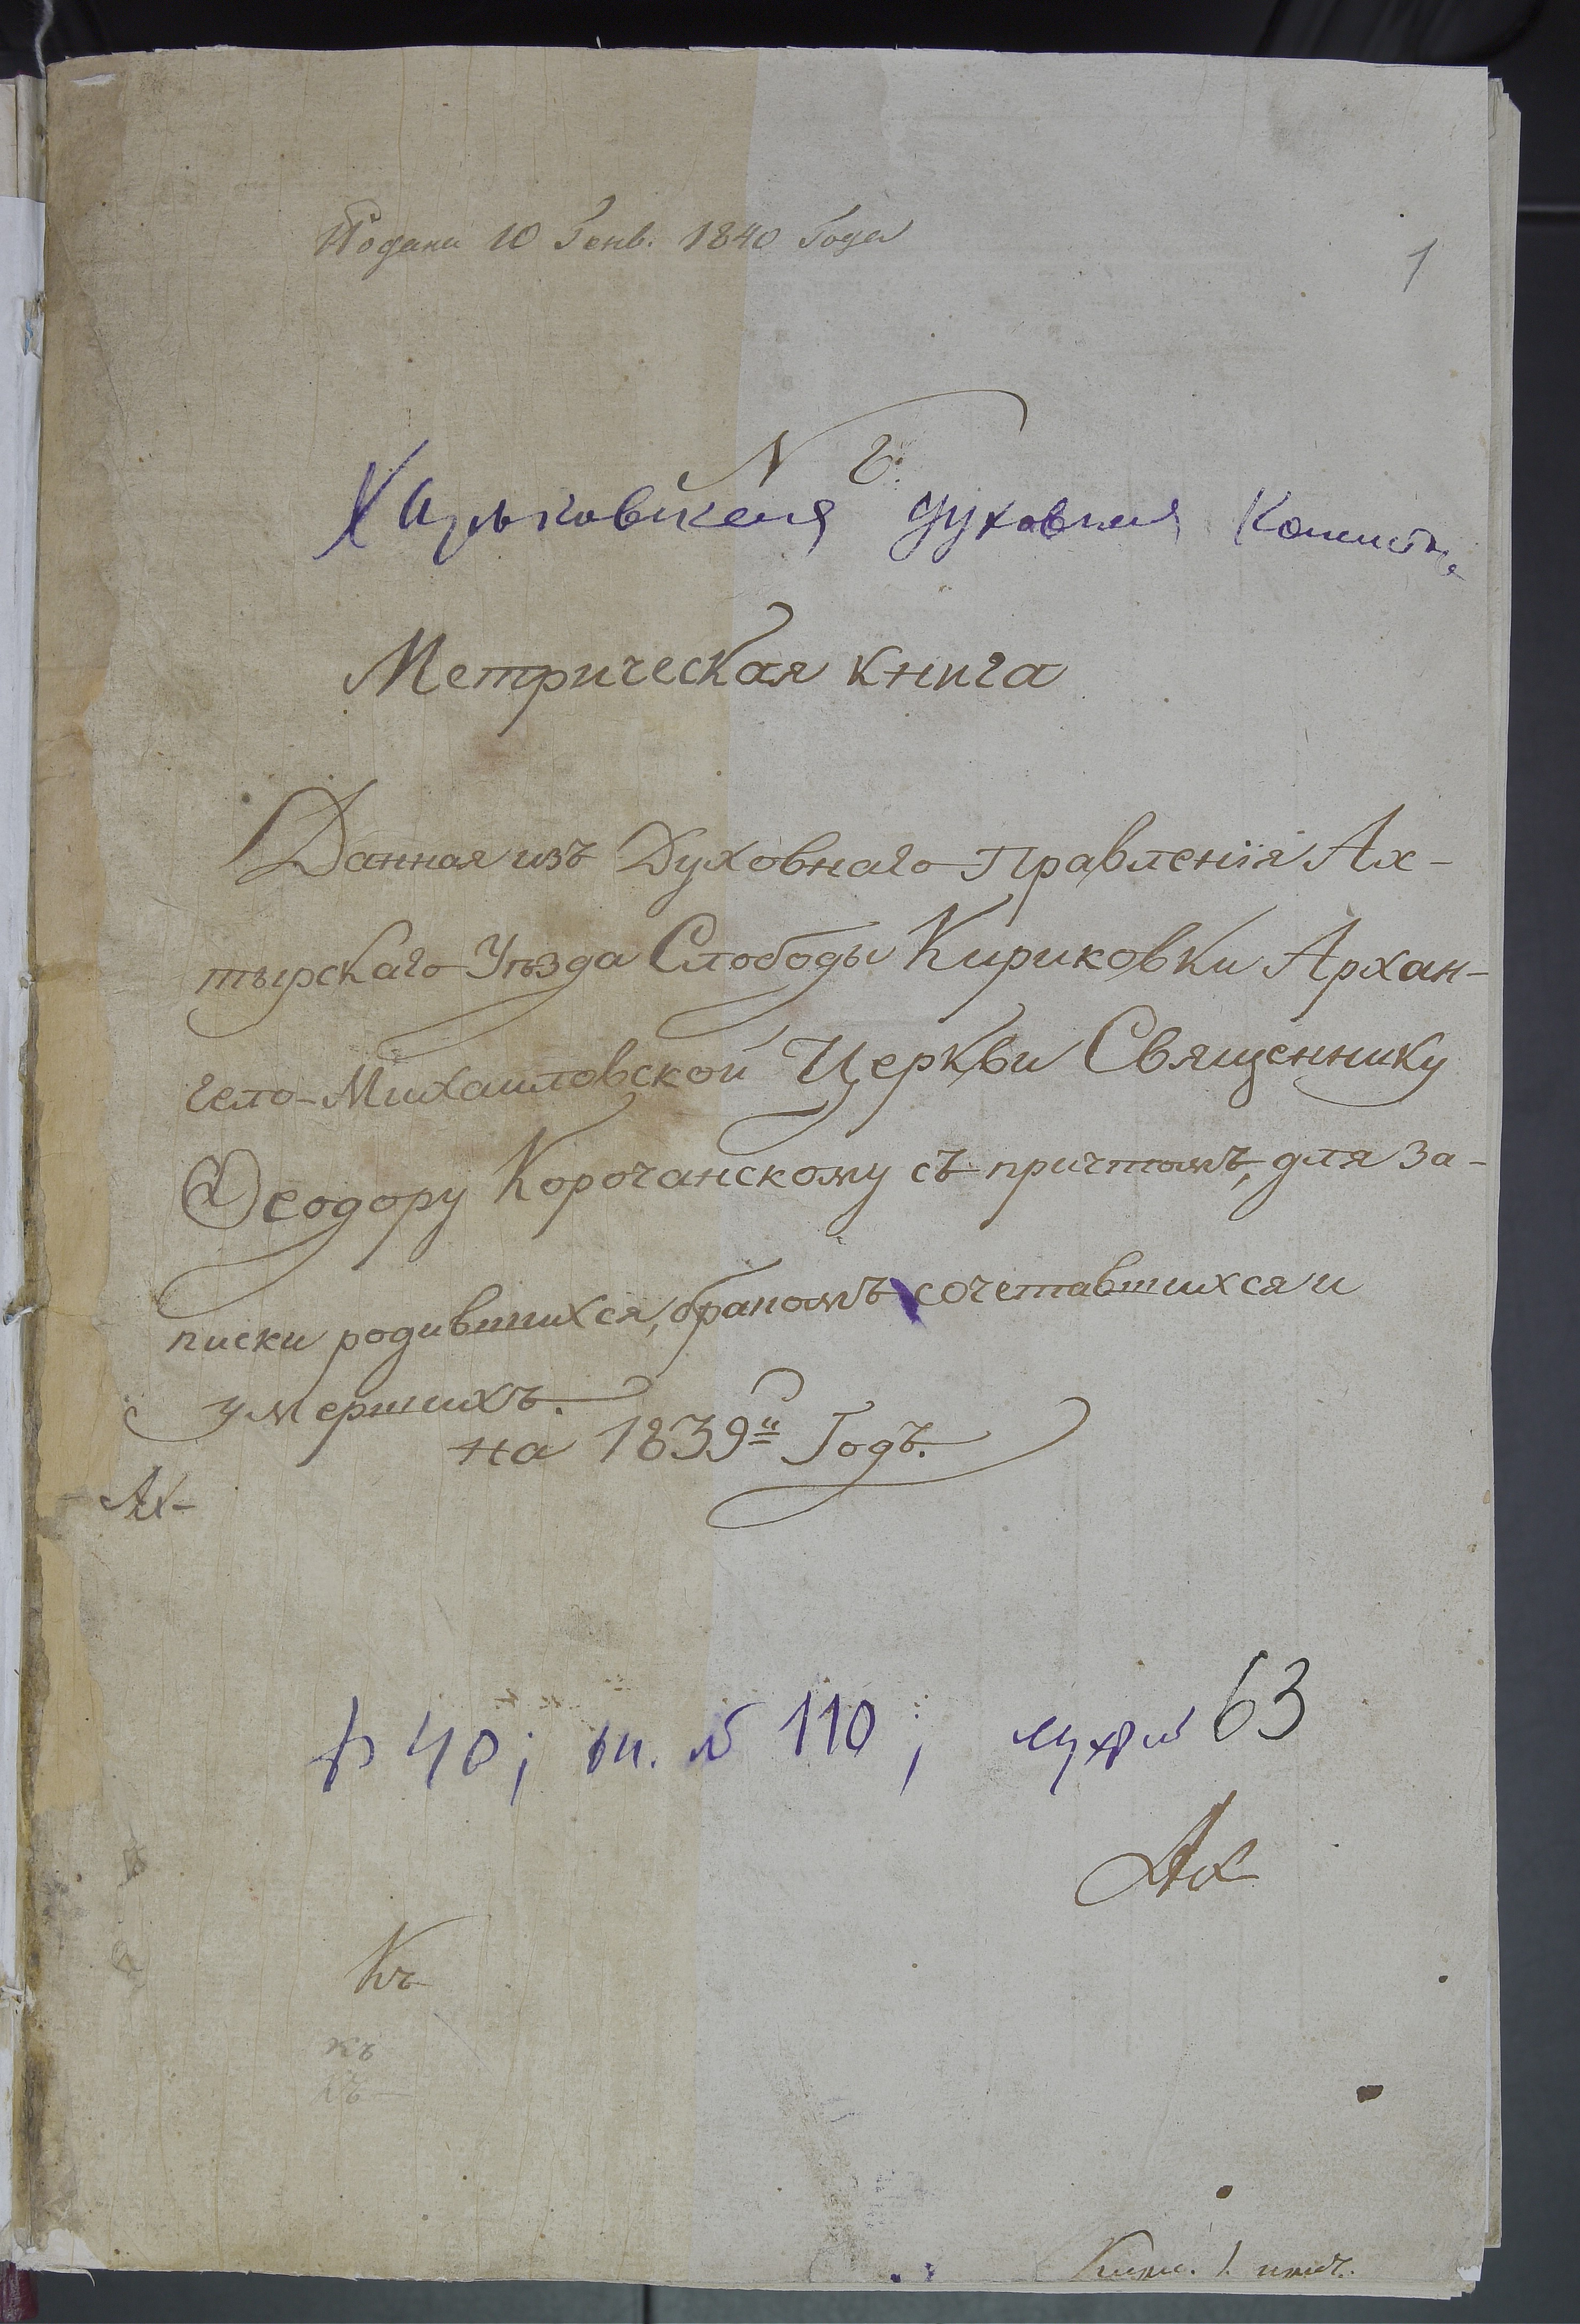 Подана 10 Генв. 1840 года
1
N 6.
Харьковская духовная консист.
Метрическая книга
Данная изъ Духовнаго Правленія Ах-
тырскаго Уѣзда Слободы Кириковки Архан-
гело-Михаиловской Церкви Священнику
Ѳеодору Корочанскому съ причтомъ, для за-
писки родившихся, бракомъ сочетавшихся и
умершихъ.
на 1839й Годъ.
Ах-
ф 40; оп. № 110; 63
Ах
Къ
къ
къ